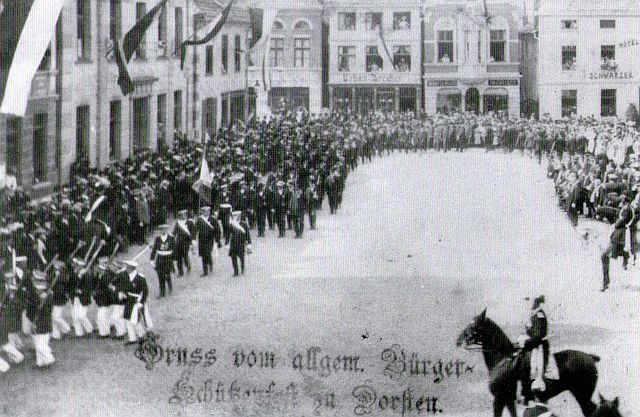 HOTEL
SCHWARZER
Gruss vom allgem. Bürger-
Schützenfest zu Dorsten.